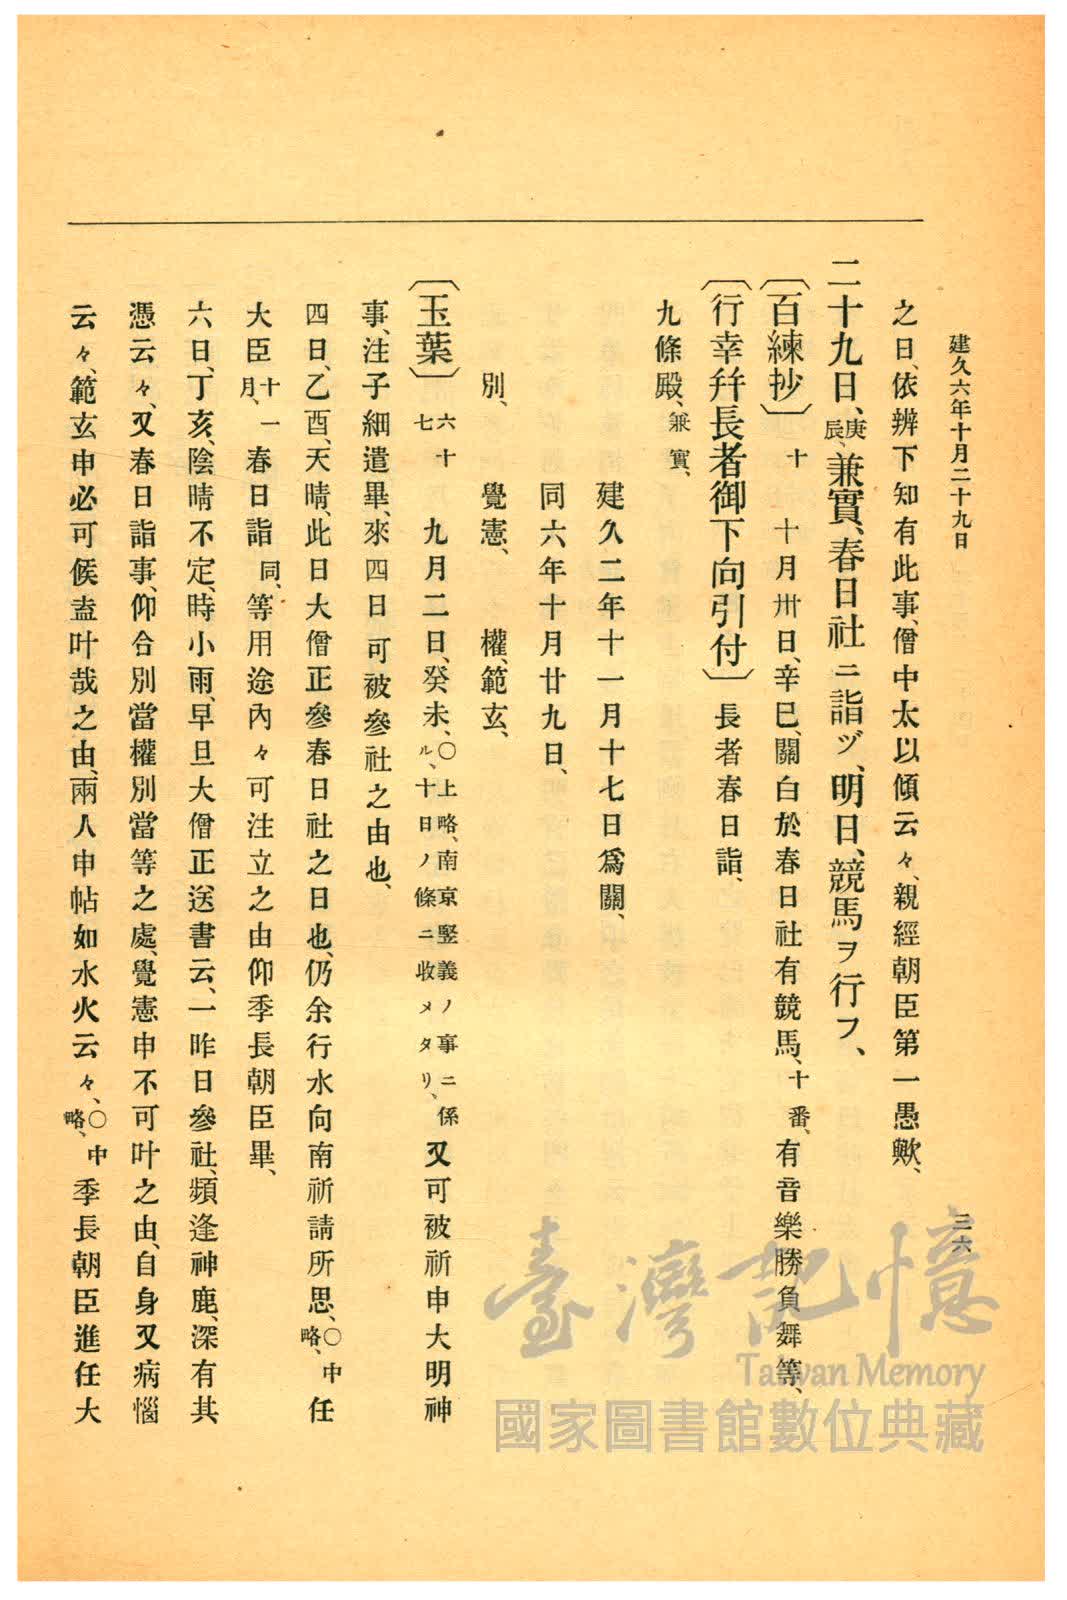 建久六年十月二十九日
三六
之日、依辨下知有此事、僧中太以傾云々、親經朝臣第一愚歟、
二十九日、庚辰、兼實、春日社ニ詣ヅ、明日、競馬ヲ行フ、
〔百練抄〕十 十月卅日、辛巳、關白於春日社有競馬、十番、有音樂勝負舞等、
〔行幸幷長者御下向引付〕長者春日詣、
九條殿、兼實、
建久二年十一月十七日爲關、
同六年十月廿九日、
別、覺憲、權、範玄、
〔玉葉〕六十七 九月二日、癸未、〇上略、南京竪義ノ事ニ係ル、十日ノ條ニ收メタリ、又可被祈申大明神
事、注子細遣畢、來四日可被參社之由也、
四日、乙酉、天晴、此日大僧正參春日社之日也、仍余行水向南祈請所思、〇中略、任
大臣十一月、春日詣同、等用途內々可注立之由仰季長朝臣畢、
六日、丁亥、陰晴不定、時小雨、早旦大僧正送書云、一昨日參社、頻逢神鹿、深有其
憑云々、又春日詣事、仰合別當權別當等之處、覺憲申不可叶之由、自身又病惱
云々、範玄申必可候盍叶哉之由、兩人申帖如水火云々、〇中略、季長朝臣進任大
臺灣記憶
Taiwan Memory
國家圖書館數位典藏